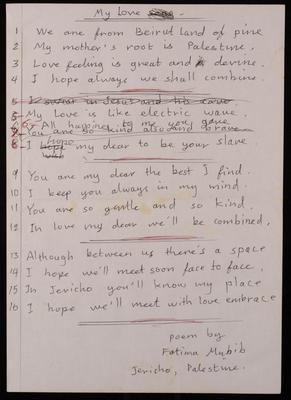 My Love
1 We are from Beirut land of pine
2 My mother's root is Palestine.
3 Love feeling is great and devine.
4 I hope always we shall combine.
5 I swear in Jesus and his cave
5 My Love is like electric wave.
6 All happiness to me you gave
7 You are so kind also and brave
8 I hope my dear to be your slave
9 You are my dear the best I find.
10 I keep you always in my mind.
11 You are so gentle and so kind.
12 In love my dear we'll be combined.
13 Although between us there's a space
14 I hope we'll meet soon face to face.
15 In Jericho you'll know my place
16 I hope we'll meet with love enbrace
poem by
Fatima Muhib
Jericho, Palestine.